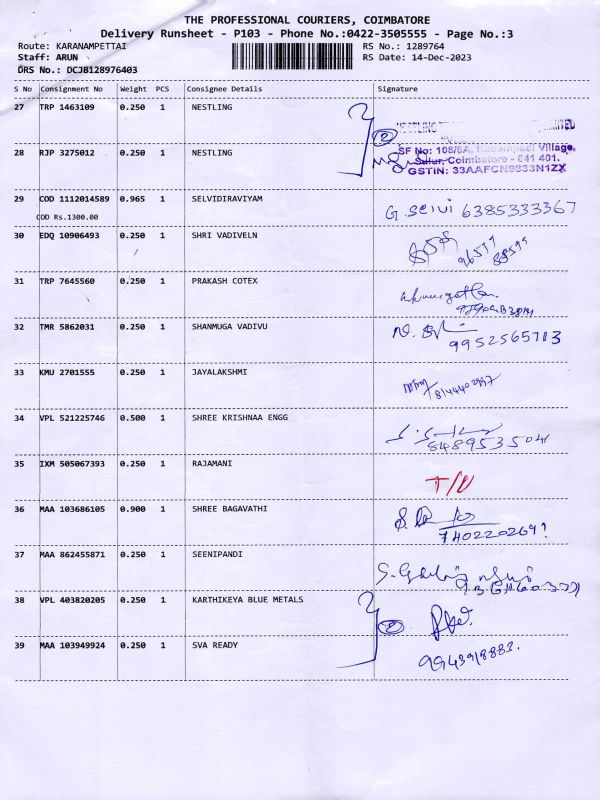 THE PROFESSIONAL COURIERS, COIMBATORE
Delivery Runsheet - P103 - Phone No.:0422-3505555 - Page No.:3
Route: KARANAMPETTAI RS No.: 1289764
Staff: ARUN RS Date: 14-Dec-2023
DRS No.: DCJB128976403
S No Consignment No Weight PCS Consignee Details Signature
27 TRP 1463109 0.250 1 NESTLING
28 RJP 3275012 0.250 1 NESTLING
2
SF No: 108/6A, Kadampadi Village,
Sulur, Coimbatore - 641 401.
GSTIN: 33AAFCN9833N1ZX
29 COD 1112014589 0.965 1 SELVIDIRAVIYAM G. Selvi 6385333367
COD Rs.1300.00
30 EDQ 10906493 0.250 1 SHRI VADIVELN
31 TRP 7645560 0.250 1 PRAKASH COTEX
32 TMR 5862031 0.250 1 SHANMUGA VADIVU
33 KMU 2701555 0.250 1 JAYALAKSHMI
34 VPL 521225746 0.500 1 SHREE KRISHNAA ENGG
35 IXM 505067393 0.250 1 RAJAMANI
36 MAA 103686105 0.900 1 SHREE BAGAVATHI
37 MAA 862455871 0.250 1 SEENIPANDI
38 VPL 403820205 0.250 1 KARTHIKEYA BLUE METALS
2
39 MAA 103949924 0.250 1 SVA READY